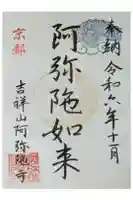 奉納 令和六年十一月
阿弥陀如来
京都
吉祥山阿弥陀寺